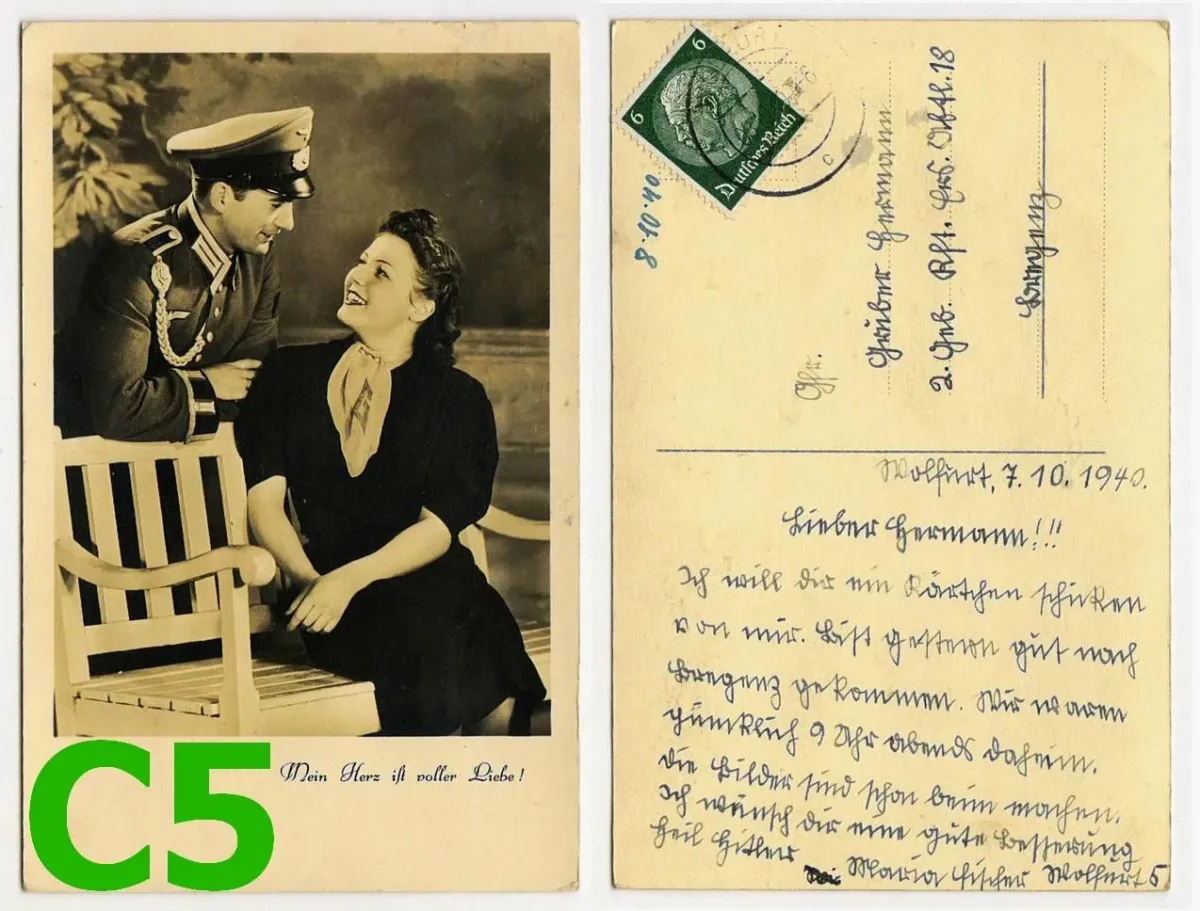 C5
Mein Herz ist voller Liebe!
6
6
Deutsches Reich
8.10.40
Gfr.
Gruber Hermann
2. Geb. Kft. Ers. Abtl. 18
Bregenz
Wolfurt, 7.10.1940.
Lieber Hermann!!!
Ich will dir ein Kärtchen schicken
von mir. Bist gestern gut nach
Bregenz gekommen. Wir waren
pünktlich 9 Uhr abends daheim.
die Bilder sind schon beim machen.
Ich wünsch dir eine gute Besserung
Heil Hitler
Maria Fischer Wolfurt 5